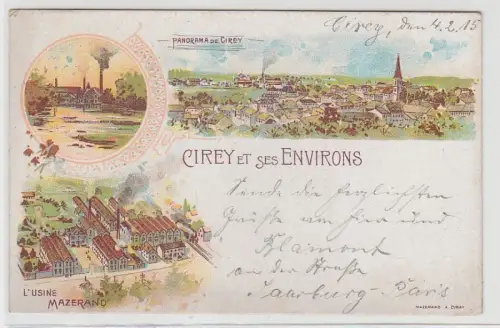 Cirey, den 4.2.15
PANORAMA DE CIREY
CIREY ET SES ENVIRONS
Sende die herzlichsten
Grüße am hier und
Blamont
an der Straße
Saarburg-Paris
L'USINE
MAZERAND
MAZERAND A CIREY